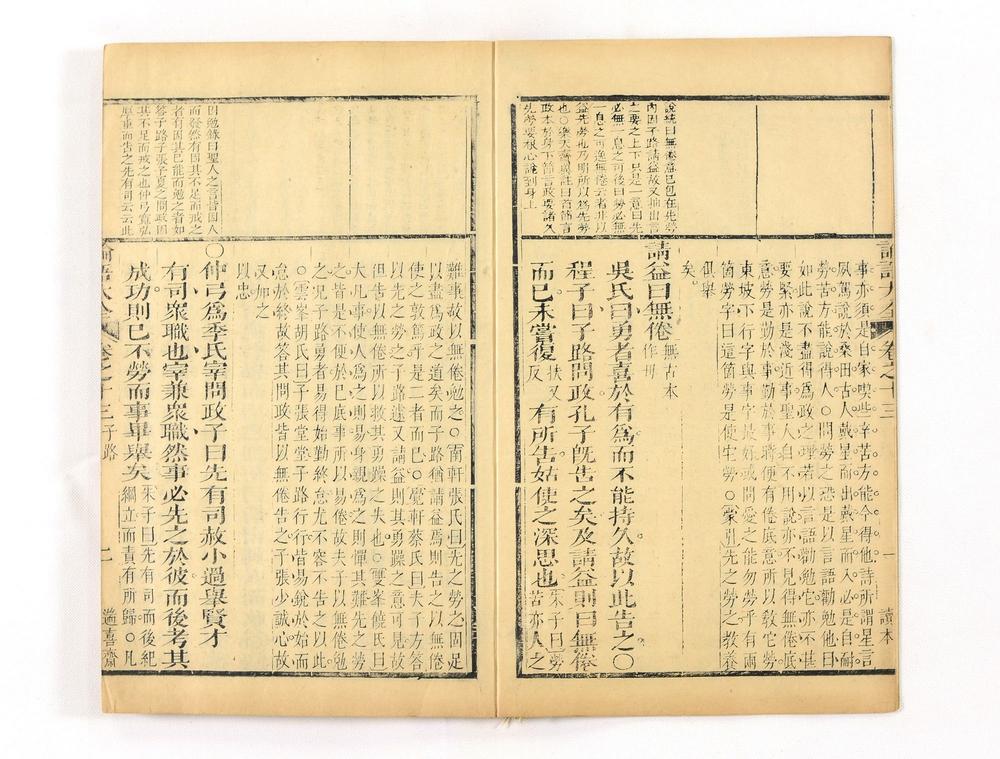 論語大全 卷之十三 一 讀本
說統曰無倦意已包在先勞
內因子路請益故又抽出言
之要之上下只是一意曰先
必無一息之可後曰勞必無
一息之可逸無倦云者非以
益先勞也乃明所以爲先勞
也○樂天齋翼註曰首節言
政本於身下節言政要諸久
先勞要根心說到身上
事亦須是自家喫些辛苦方能令得他詩所謂星言
夙駕說於桑田古人戴星而出戴星而入必是自耐
勞苦方能說得人○問勞之恐是以言語勸勉他曰
如此說不盡得爲政之理若以言語勸勉它亦不甚
要緊亦是淺近事聖人自不用說亦不見得無倦底
意勞是勤於事勤於事時便有倦底意所以敎它勞
東坡下行字與事字最好或問愛之能勿勞乎有兩
箇勞字曰這箇勞是使它勞○蒙引先之勞之敎養
俱舉
矣
請益曰無倦無古本作毋
吳氏曰勇者喜於有爲而不能持久故以此告之○
程子曰子路問政孔子旣告之矣及請益則曰無倦
而已未嘗復扶又反有所告姑使之深思也朱子曰勞苦亦人之
因勉錄曰聖人之言皆因人
而發然有因其不足而戒之
者有因其已能而勉之者如
答子路子張子夏之問政因
其不足而戒之也仲弓寬弘
厚重而告之先有司云云此
難事故以無倦勉之○南軒張氏曰先之勞之固足
以盡爲政之道矣而子路猶請益焉則告之以無倦
使之敦篤乎是二者而已○覺軒蔡氏曰夫子方答
以先之勞之子路遽又請益則其勇躁之意可見故
但告以無倦所以救其勇躁之失也○雙峯饒氏曰
大凡事使人爲之則易身親爲之則憚其難先之勞
之皆是不便於已底事所以易倦故夫子以無倦勉
之況子路勇者易得始勤終怠尤不容不告之以此
○雲峯胡氏曰子張堂堂子路行行皆易銳於始而
怠於終故答其問政皆以無倦告之子張少誠心故
又加之
以忠
○仲弓爲季氏宰問政子曰先有司赦小過舉賢才
有司衆職也宰兼衆職然事必先之於彼而後考其
成功則已不勞而事畢舉矣朱子曰先有司而後紀綱立而責有所歸○凡
論語大全 卷之十三 子路 二 遜喜齋